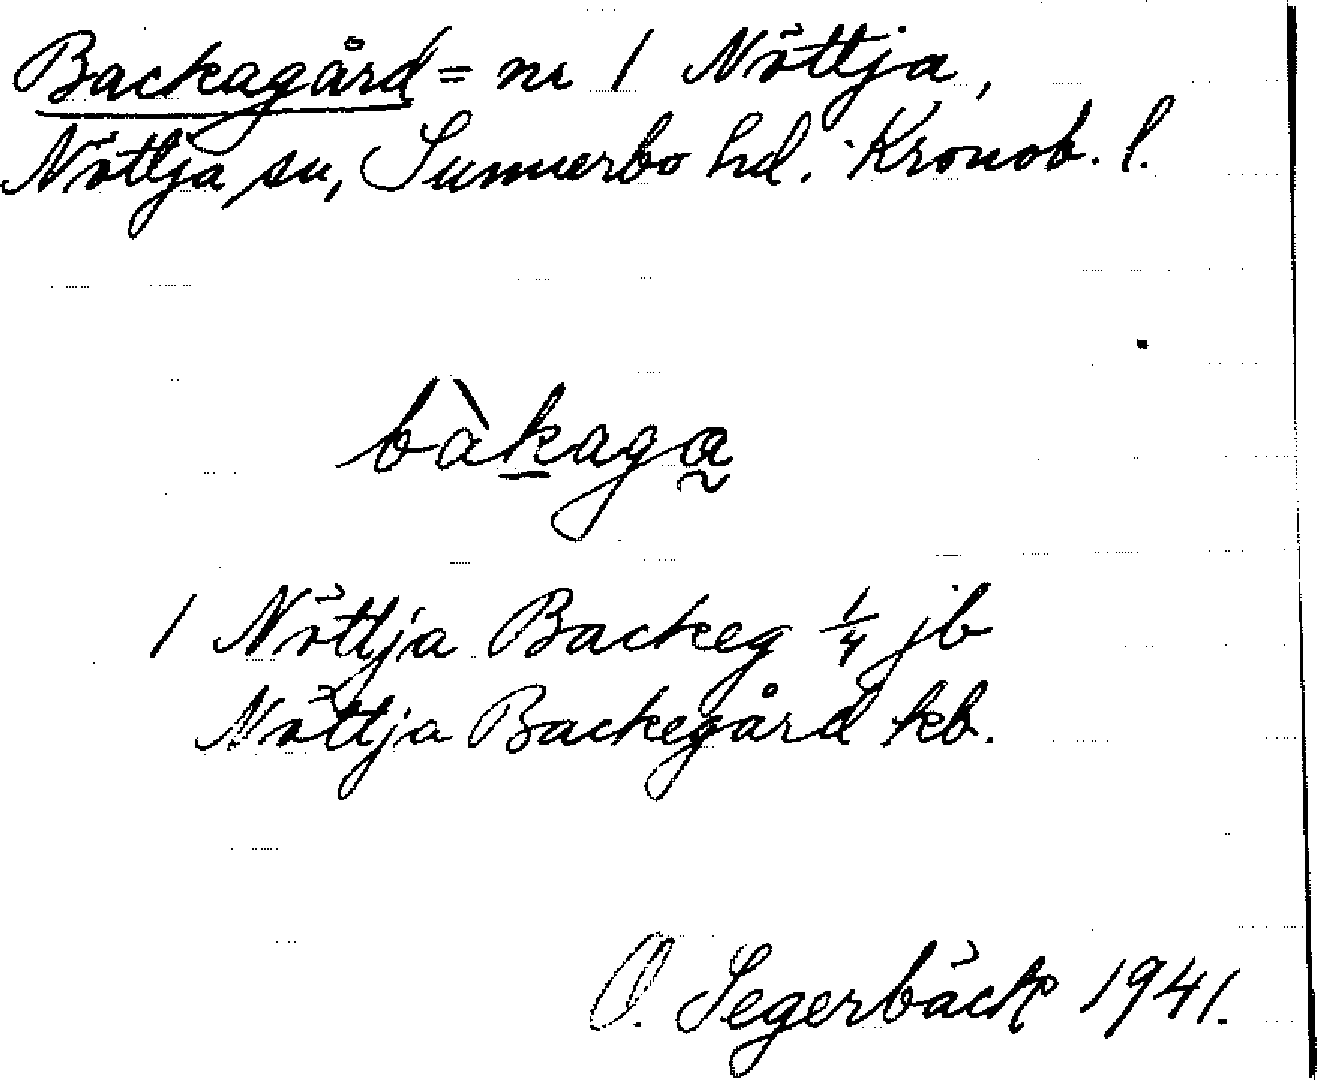 Backagård = nr 1 Nöttja,
Nöttja sn, Sunnerbo hd. Kronob. l.
bàkaga
1 Nöttja Backeg 1/4 jb
Nöttja Backegård kb.
O. Segerbäck 1941.